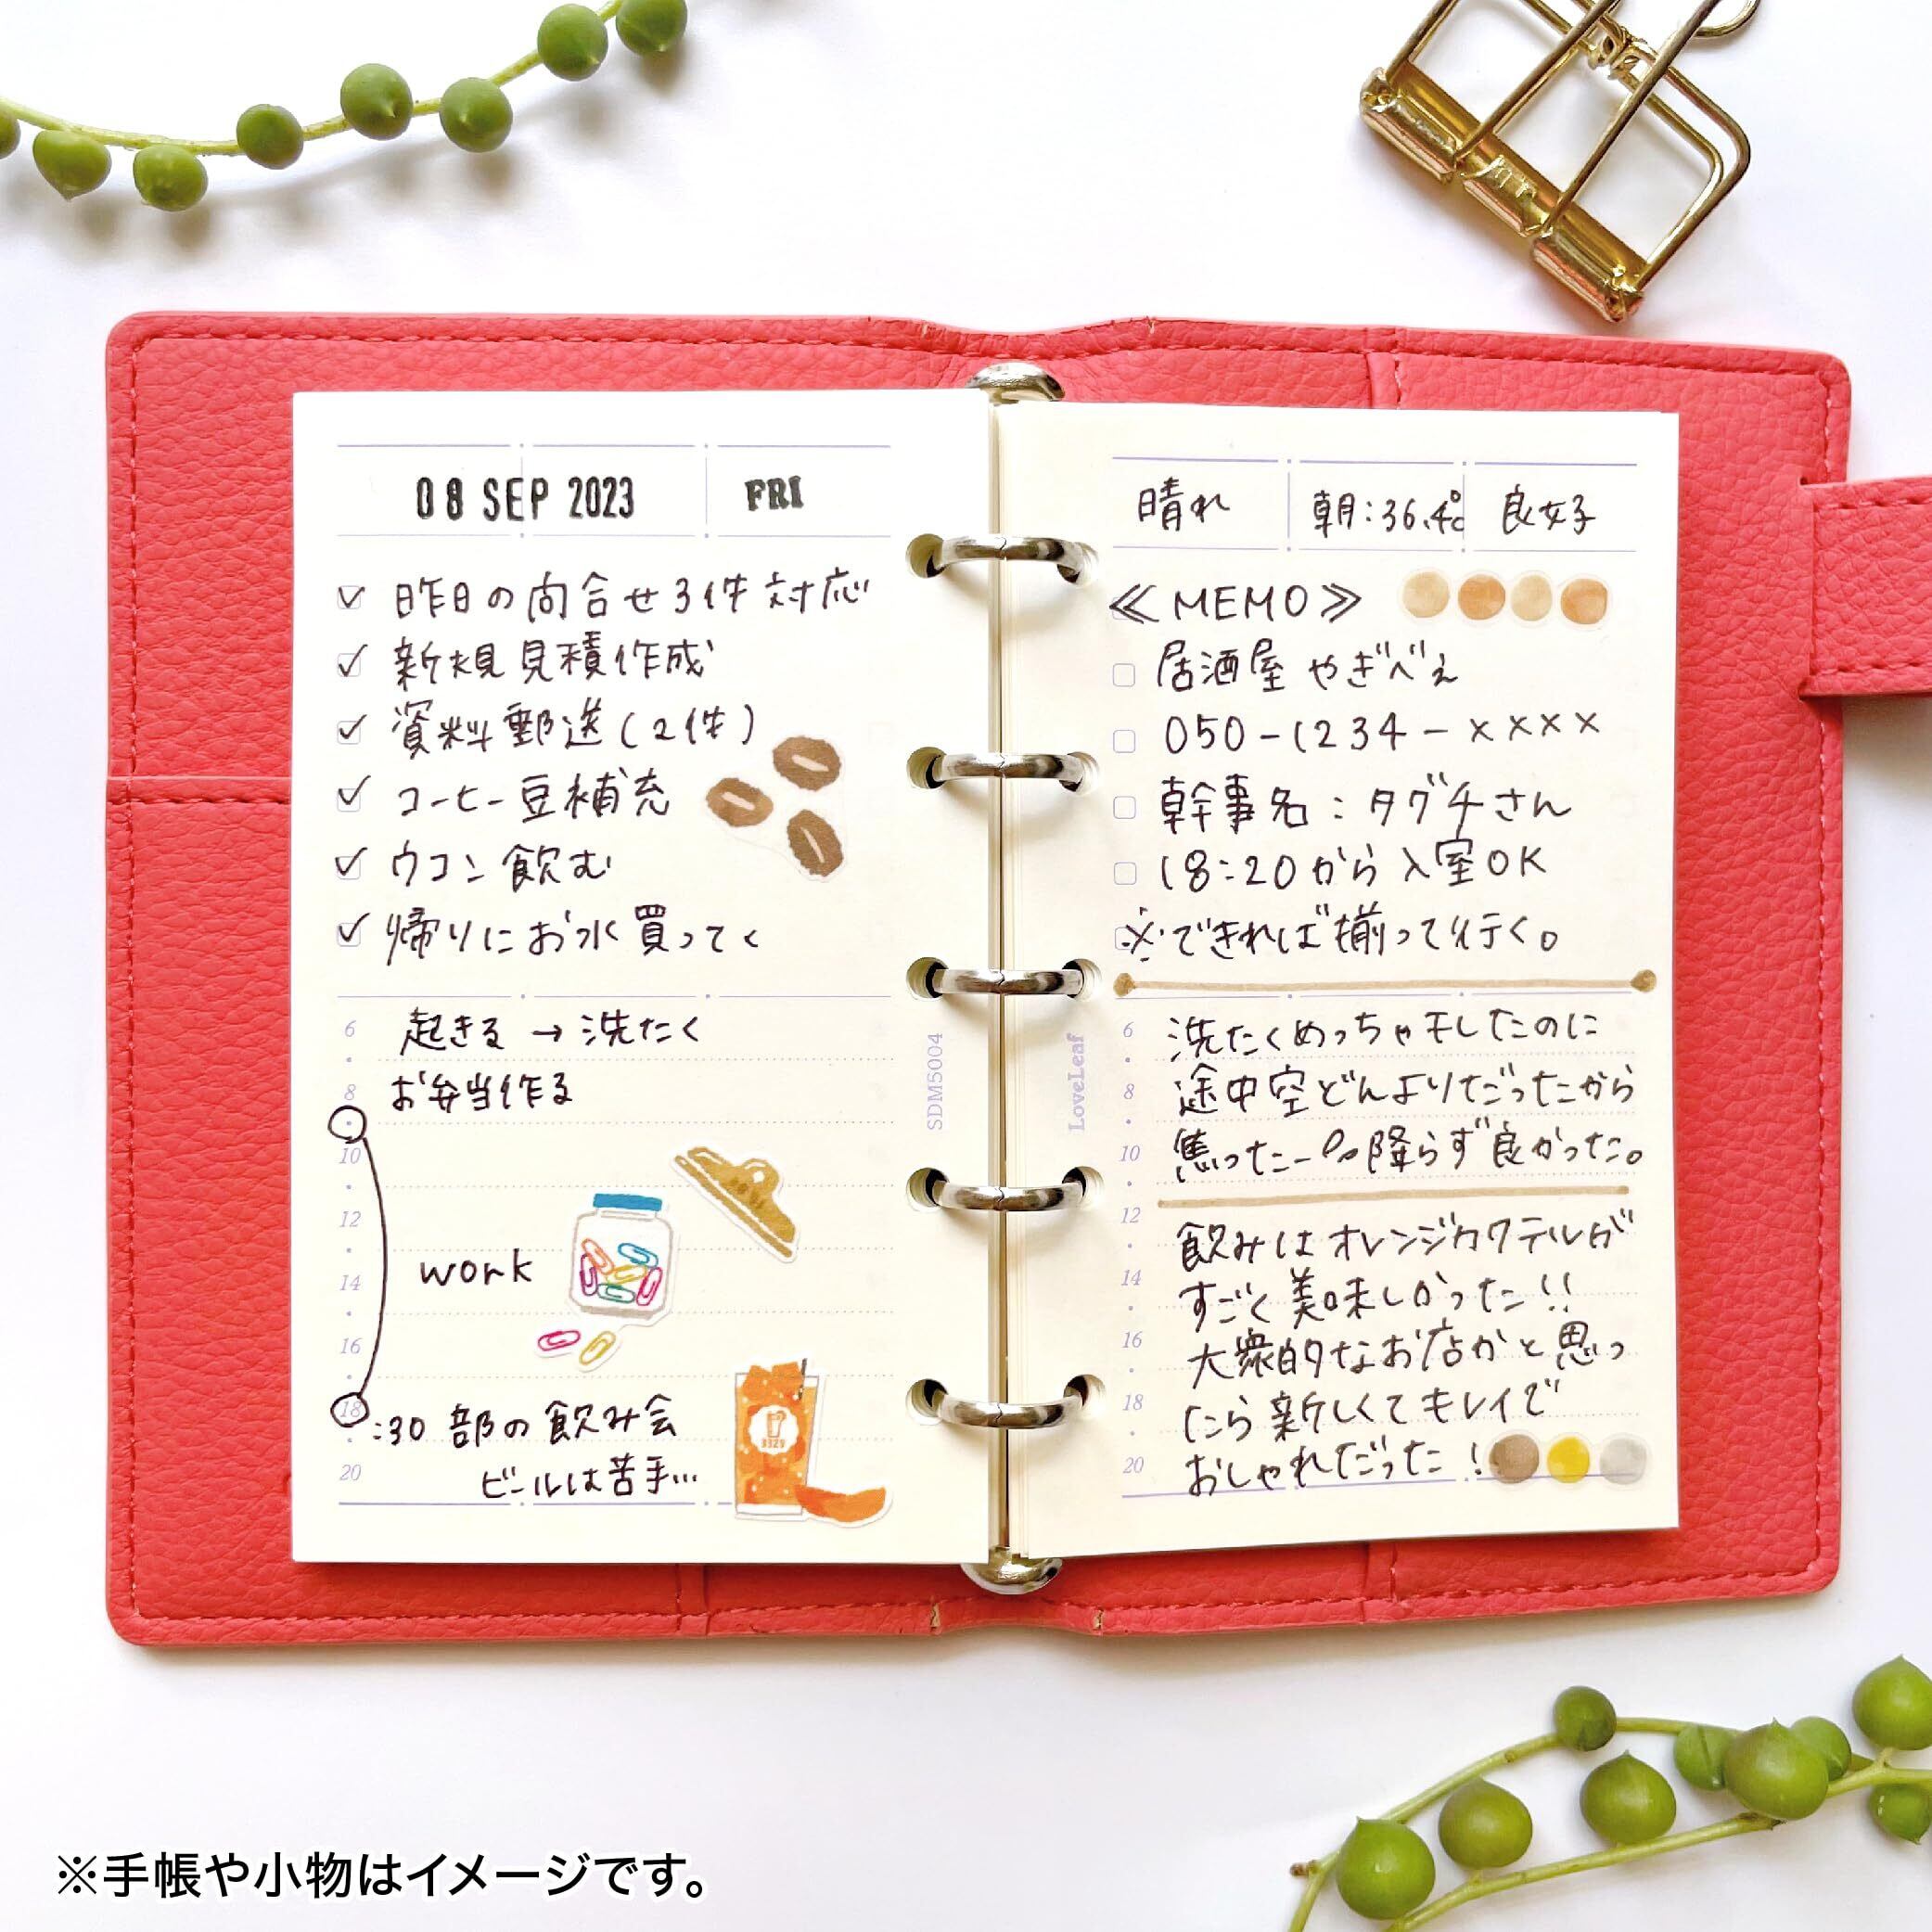 08 SEP 2023 FRI
昨日の向合せ3件対応
新規見積作成
資料郵送(2件)
コーヒー豆補充
ウコン飲む
帰りにお水買ってく
6 起きる → 洗たく
8 お弁当作る
10
12
work
14
16
18 :30 部の飲み会
20 ビールは苦手…
SDM5004
3329
晴れ 朝:36.4℃ 良好
≪MEMO≫
居酒屋 やぎべえ
050-1234-××××
幹事名:タグチさん
18:20から入室OK
※できれば揃って行く。
LoveLeaf
6 洗たくめっちゃ干したのに
8 途中空どんよりだったから
10 焦ったー 降らず良かった。
12 飲みはオレンジカクテルが
14 すごく美味しかった!!
16 大衆的なお店かと思っ
18 たら新しくてキレイで
20 おしゃれだった!
※手帳や小物はイメージです。